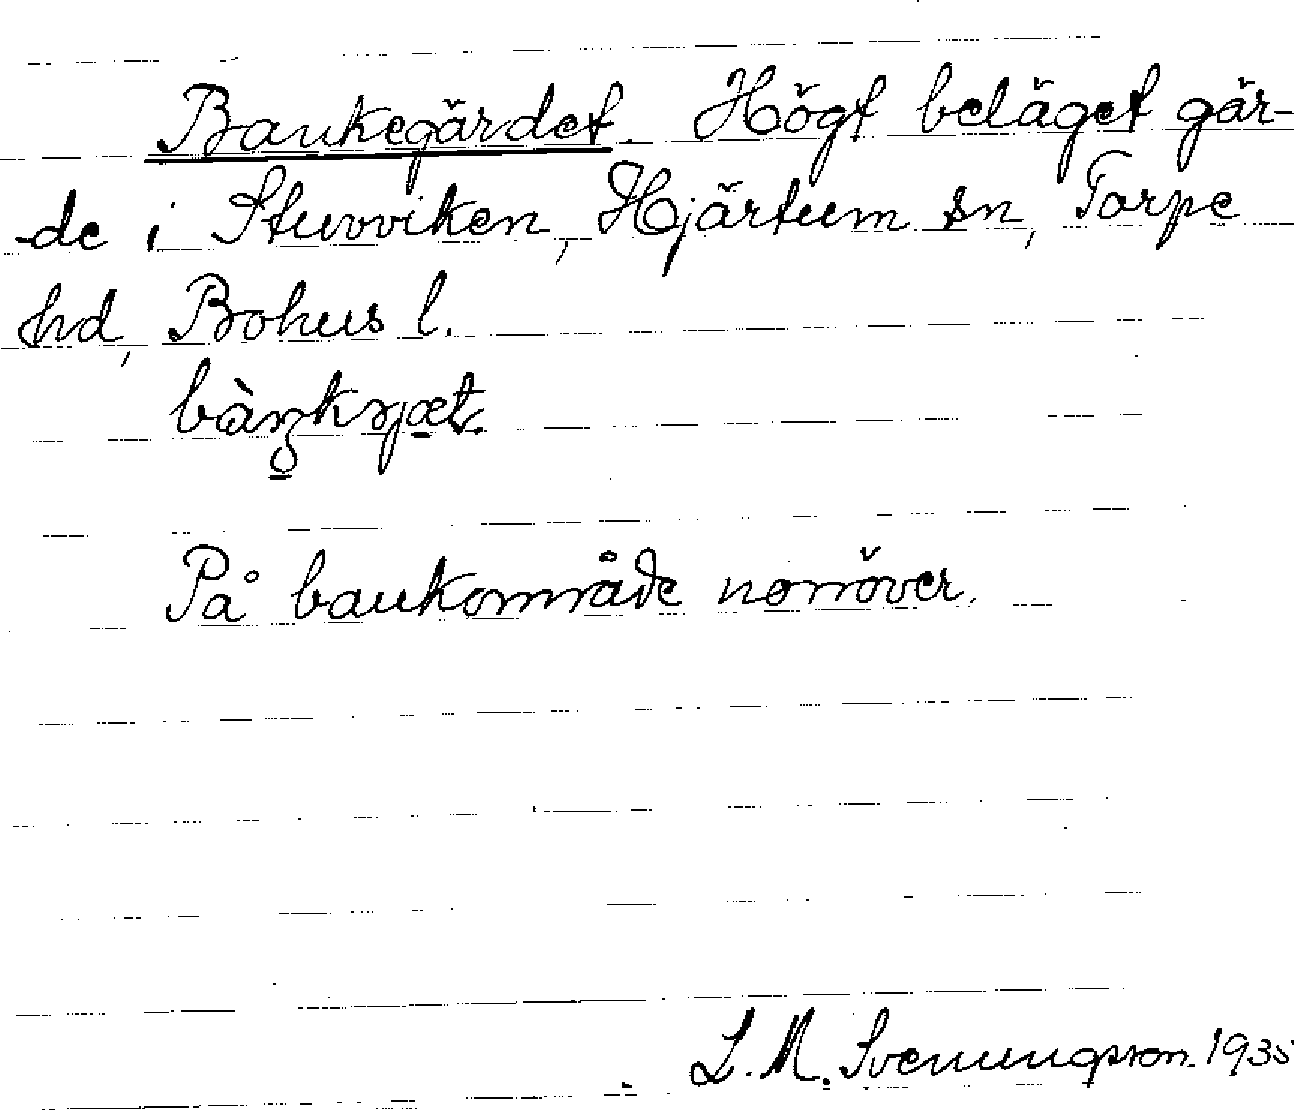 Baukegärdet. Högt beläget gär-
de i Stuvviken, Hjärtum sn, Torpe
hd, Bohus l.
På baukområde norröver.
L. M. Svenungsson 1935